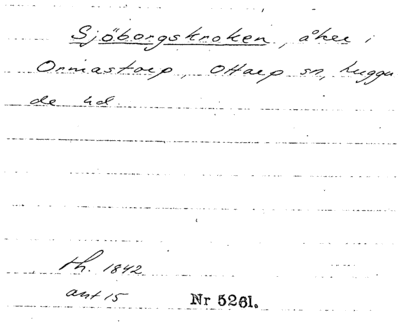 Sjöborgskroken, åker i
Ormastorp, Ottarp sn, Luggu
de hd.
th. 1842
ant 15 Nr 5261.